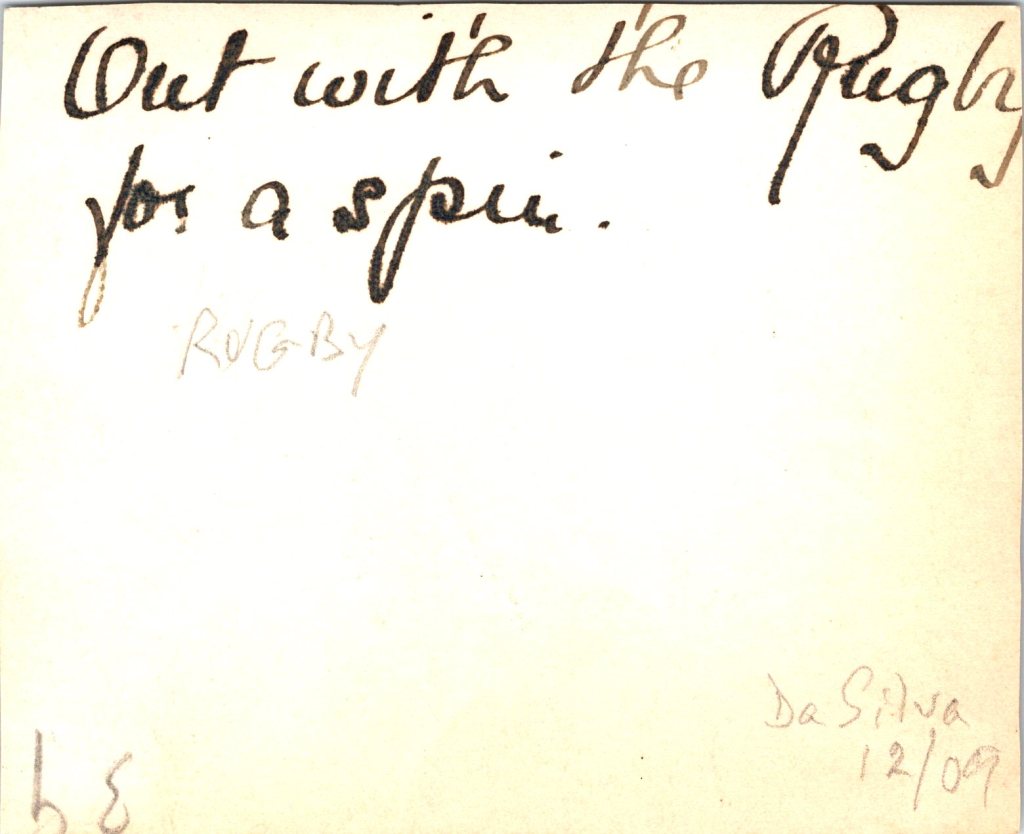 Out with the Rugby
for a spin.
RUGBY
Da Silva
12/09